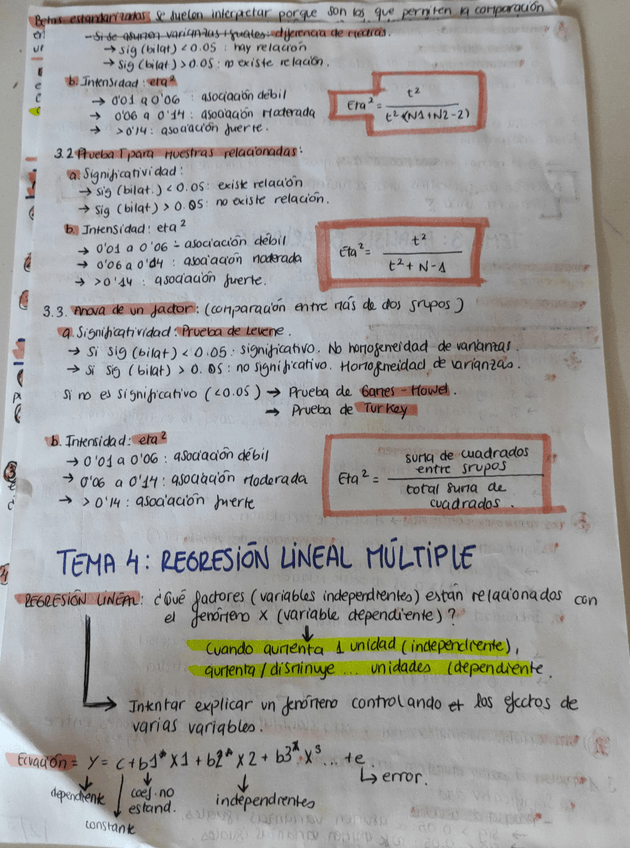 Betas estandarizadas se suelen interpretar porque son las que permiten la comparación
- Si se asumen varianzas iguales: diferencia de medias.
→ sig (bilat) < 0.05 : hay relación
→ Sig (bilat) > 0.05 : no existe relación.
b. Intensidad: eta²
→ 0'01 a 0'06 : asociación débil
→ 0'06 a 0'14 : asociación Moderada
→ > 0'14 : asociación fuerte.
Eta² = t² / t² + (N1 + N2 - 2)
3.2 Prueba T para muestras relacionadas:
a. Significatividad:
→ Sig (bilat.) < 0.05 : existe relación
→ Sig (bilat) > 0.05 : no existe relación.
b. Intensidad: eta²
→ 0'01 a 0'06 - asociación débil
→ 0'06 a 0'14 : asociación moderada
→ > 0'14 : asociación fuerte.
Eta² = t² / t² + N - 1
3.3. Anova de un factor: (comparación entre más de dos grupos)
a. Significatividad: Prueba de Levene.
→ Si Sig (bilat) < 0.05 : significativo. No homogeneidad de varianzas.
→ Si Sig (bilat) > 0.05 : no significativo. Homogeneidad de varianzas.
Si no es significativo (< 0.05) → Prueba de Games - Howel.
→ Prueba de Turkey
b. Intensidad: eta²
→ 0'01 a 0'06 : asociación débil
→ 0'06 a 0'14 : asociación Moderada
→ > 0'14 : asociación fuerte
Eta² = suma de cuadrados entre grupos / total suma de cuadrados.
TEMA 4: REGRESIÓN LINEAL MÚLTIPLE
REGRESIÓN LINEAL: ¿Qué factores (variables independientes) están relacionados con
el fenómeno X (variable dependiente)?
↓
Cuando aumenta 1 unidad (independiente),
aumenta / disminuye ... unidades (dependiente.
→ Intentar explicar un fenómeno controlando et los efectos de
varias variables.
Ecuación = Y = C + b1* X1 + b2* X2 + b3* X3 ... + e.
dependiente
constante
coef. no
estand.
independientes
error.